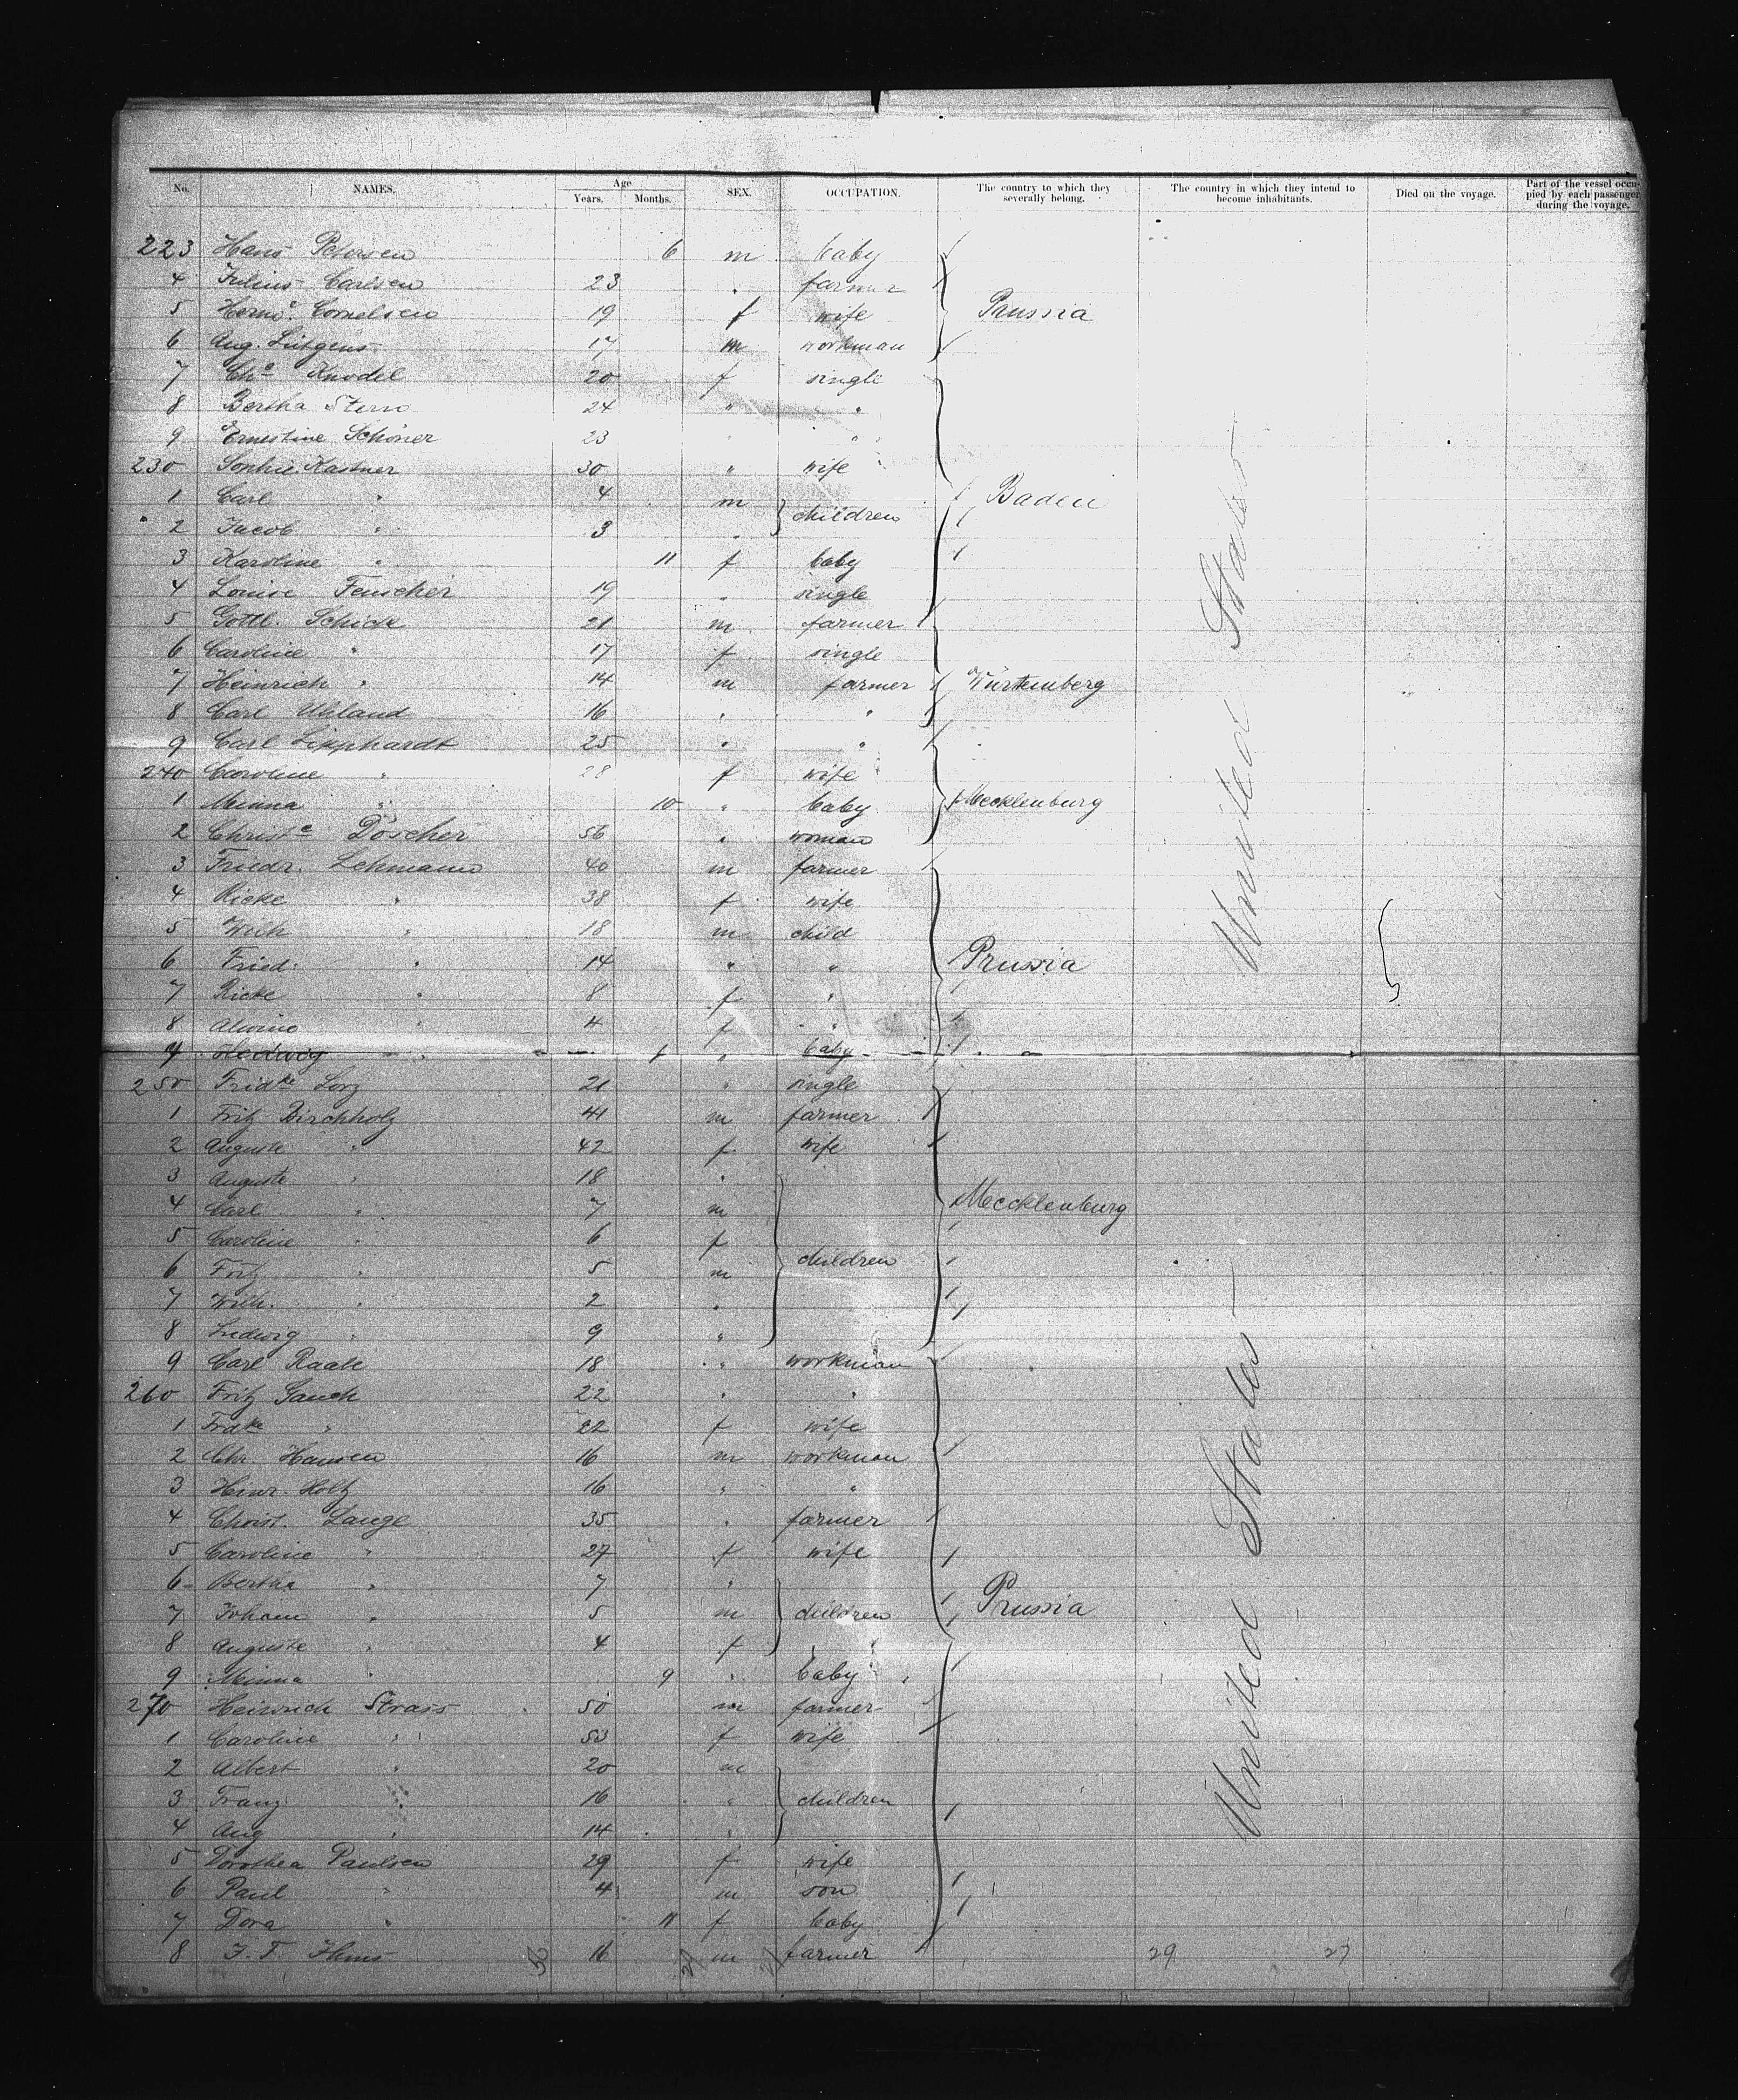 No. NAMES. Age Years. Months. SEX. OCCUPATION. The country to which they severally belong. The country in which they intend to become inhabitants. Died on the voyage. Part of the vessel occupied by each passenger during the voyage.
223 Hans Petersen 6 m baby
4 Julius Carlsen 23 " farmer
5 Hermᵉ Cornelsen 19 f wife Prussia
6 Aug. Lütgens 17 m workman
7 Chᵉ Knodel 20 f single
8 Bertha Stern 24 " "
9 Ernestine Schöner 23 " "
230 Sophie Kastner 30 " wife
1 Carl " 4 m children Baden
2 Jacob " 3 "
3 Karoline " 11 f baby
4 Louise Feuscher 19 " single
5 Gottl. Schick 21 m farmer
6 Caroline " 17 f single
7 Heinrich " 14 m farmer Würtemberg
8 Carl Uhland 16 " "
9 Carl Lipphardt 25 " "
240 Caroline " 28 f wife
1 Minna " 10 " baby Mecklenburg
2 Christᵉ Döscher 56 " woman
3 Friedr. Lehmann 40 m farmer
4 Ricke " 38 f wife
5 Wilh " 18 m child
6 Fried. " 14 " " Prussia
7 Ricke " 8 f "
8 Alwine " 4 f "
9 Hedwig " " baby
250 Fridke Lorz 21 " single
1 Fritz Birchholz 41 m farmer
2 Auguste " 42 f wife
3 Auguste " 18 "
4 Carl " 7 m Mecklenburg
5 Caroline " 6 f
6 Fritz " 5 m children
7 Wilh. " 2 "
8 Ludwig " 9 "
9 Carl Raate 18 " workman
260 Fritz Gauch 22 " "
1 Frdke " 22 f wife
2 Chr. Hansen 16 m workman
3 Heinr. Holtz 16 " "
4 Christ. Lange 35 " farmer
5 Caroline " 27 f wife
6 Bertha " 7 "
7 Johann " 5 m children Prussia
8 Auguste " 4 f
9 Minna " 9 " baby
270 Heinrich Strass 50 m farmer
1 Caroline " 53 f wife
2 Albert " 20 m
3 Franz " 16 " children
4 Aug " 14 "
5 Dorothea Paulsen 29 f wife
6 Paul " 4 m son
7 Dora " 11 f baby
8 J. T. 16 m farmer 29 27
United States
United States